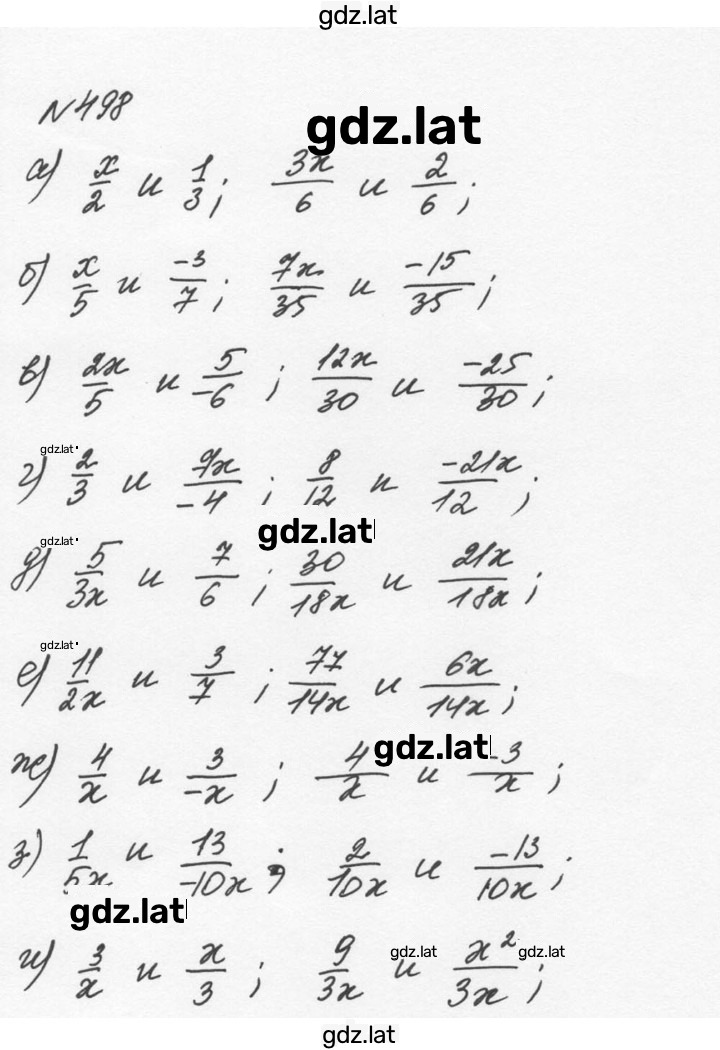 gdz.lat
№498
gdz.lat
а) x/2 и 1/3; 3x/6 и 2/6;
б) x/5 и -3/7; 7x/35 и -15/35;
в) 2x/5 и 5/-6; 12x/30 и -25/30;
gdz.lat
г) 2/3 и 7x/-4; 8/12 и -21x/12;
gdz.lat
gdz.lat
д) 5/3x и 7/6; 30/18x и 21x/18x;
gdz.lat
е) 11/2x и 3/7; 77/14x и 6x/14x;
gdz.lat
ж) 4/x и 3/-x; 4/x и -3/x;
з) 1/5x и 13/-10x; 2/10x и -13/10x;
gdz.lat
gdz.lat gdz.lat
и) 3/x и x/3; 9/3x и x²/3x;
gdz.lat